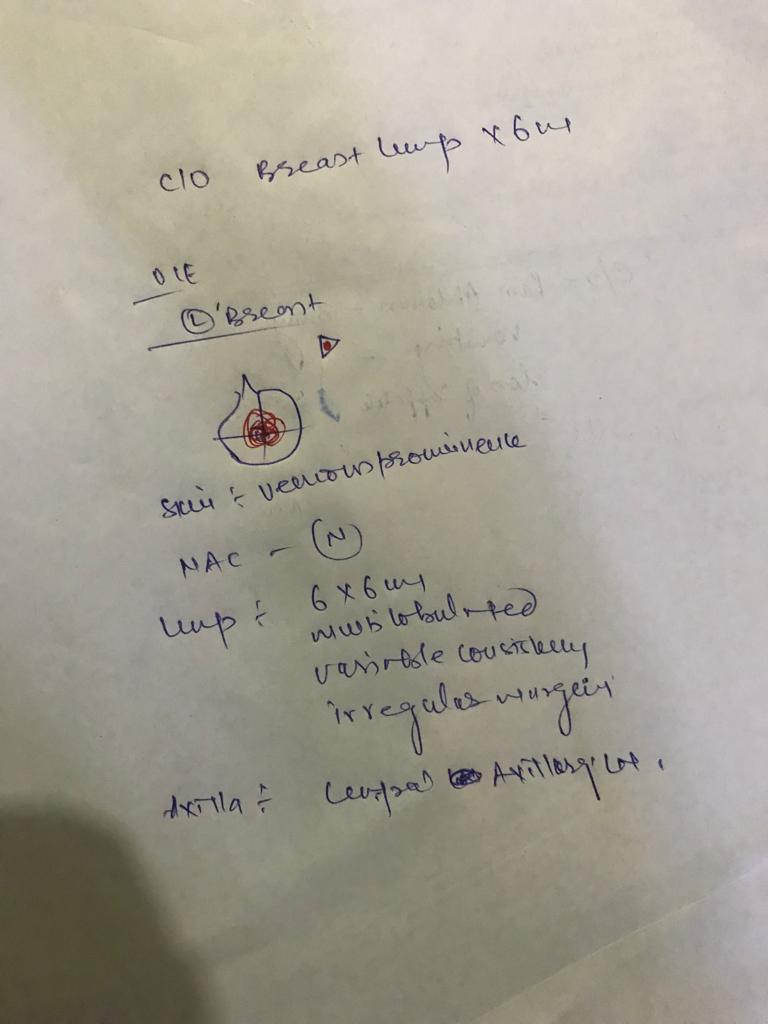 C/O Breast lump x 6m
O/E
(L) Breast
Skin :- venous prominence
NAC - (N)
lump :- 6 x 6 cm
multilobulated
variable consistency
irregular margin
Axilla :- Central Axillary LN.